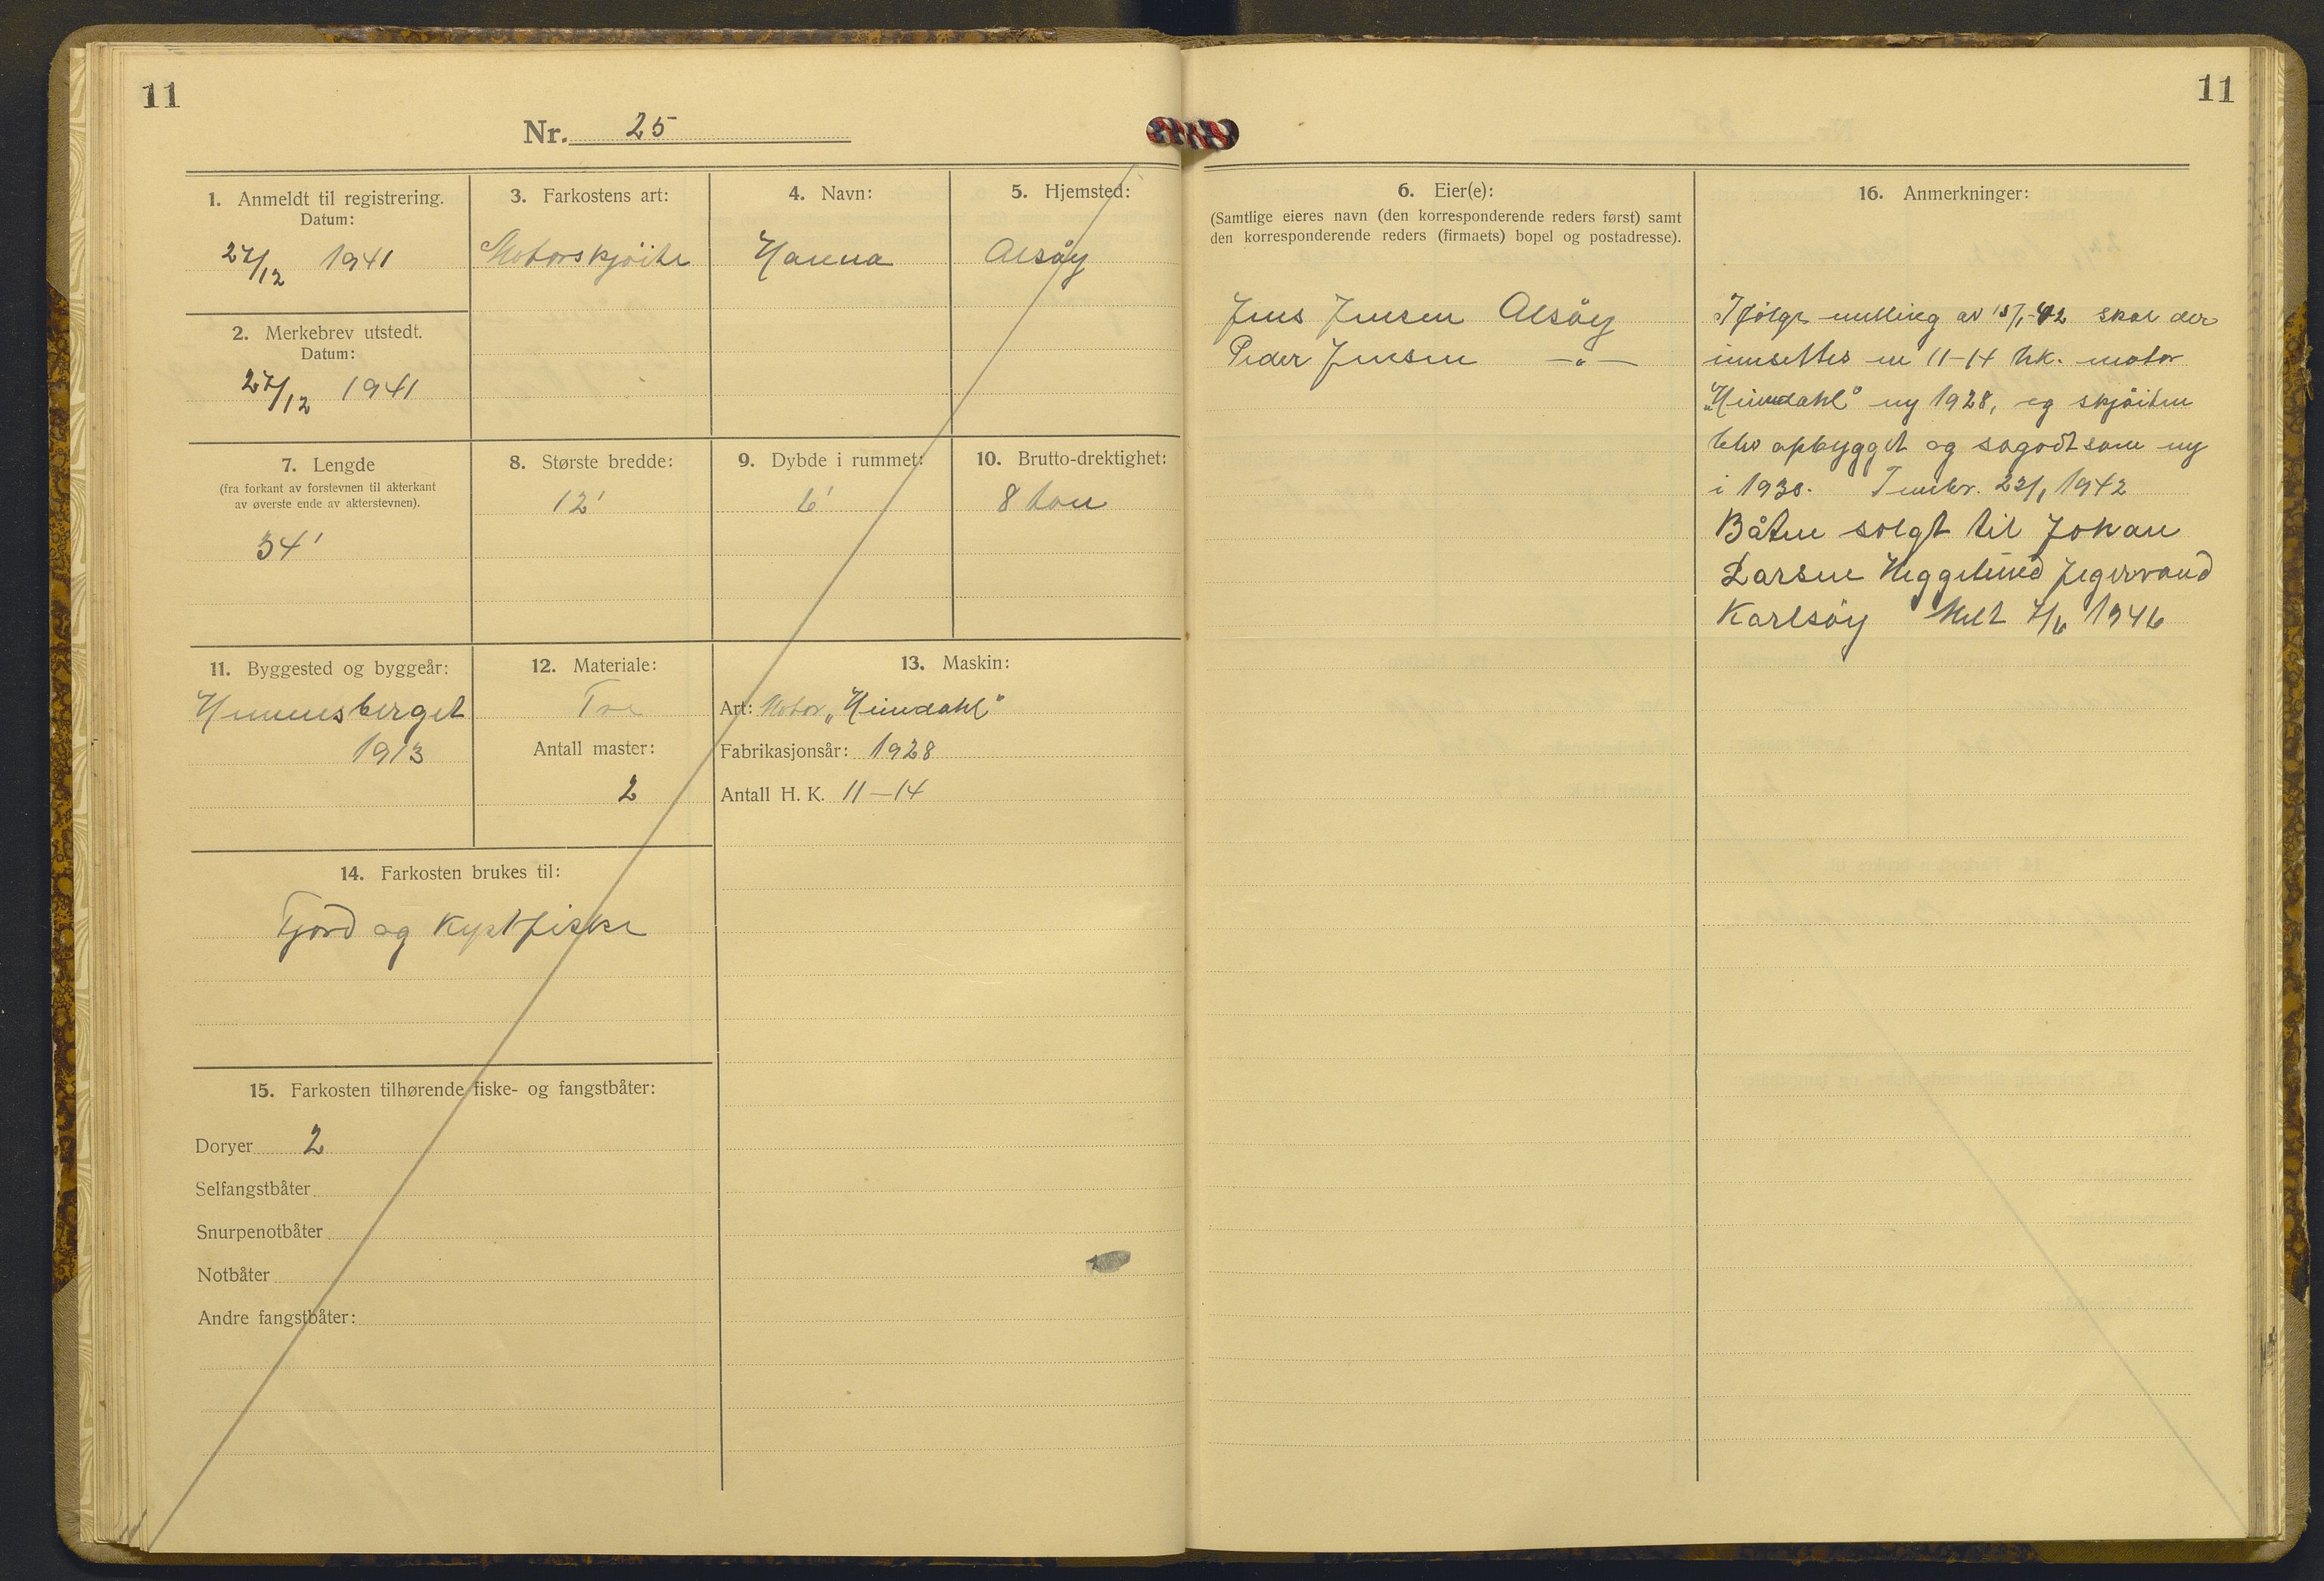 11
Nr. 25
1. Anmeldt til registrering.
Datum:
27/12 1941
2. Merkebrev utstedt.
Datum:
27/12 1941
3. Farkostens art:
Motorskjöite
4. Navn:
Hanna
5. Hjemsted:
Alsøy
7. Lengde
(fra forkant av forstevnen til akterkant
av øverste ende av akterstevnen).
34'
8. Største bredde:
12'
9. Dybde i rummet:
6'
10. Brutto-drektighet:
8 ton
11. Byggested og byggeår:
Hemnesberget
1913
12. Materiale:
Tre
Antall master:
2
13. Maskin:
Art: Motor „Heimdahl"
Fabrikasjonsår: 1928
Antall H. K. 11-14
14. Farkosten brukes til:
Fjord og Kystfiske
15. Farkosten tilhørende fiske- og fangstbåter:
Doryer 2
Selfangstbåter
Snurpenotbåter
Notbåter
Andre fangstbåter:
11
6. Eier(e):
(Samtlige eieres navn (den korresponderende reders først) samt
den korresponderende reders (firmaets) bopel og postadresse).
Jens Jensen Alsøy
Peder Jensen —"—
16. Anmerkninger:
Ifölge melding av 15/1-42 skal der
innsettes en 11-14 hk. motor
„Heimdahl" ny 1928, og skjöiten
blev opbygget og sagodtsom ny
i 1938. 22/1 1942
Båten solgt til Johan
Larsen Heggelund Jegervand
Karlsøy Melt 7/6 1946